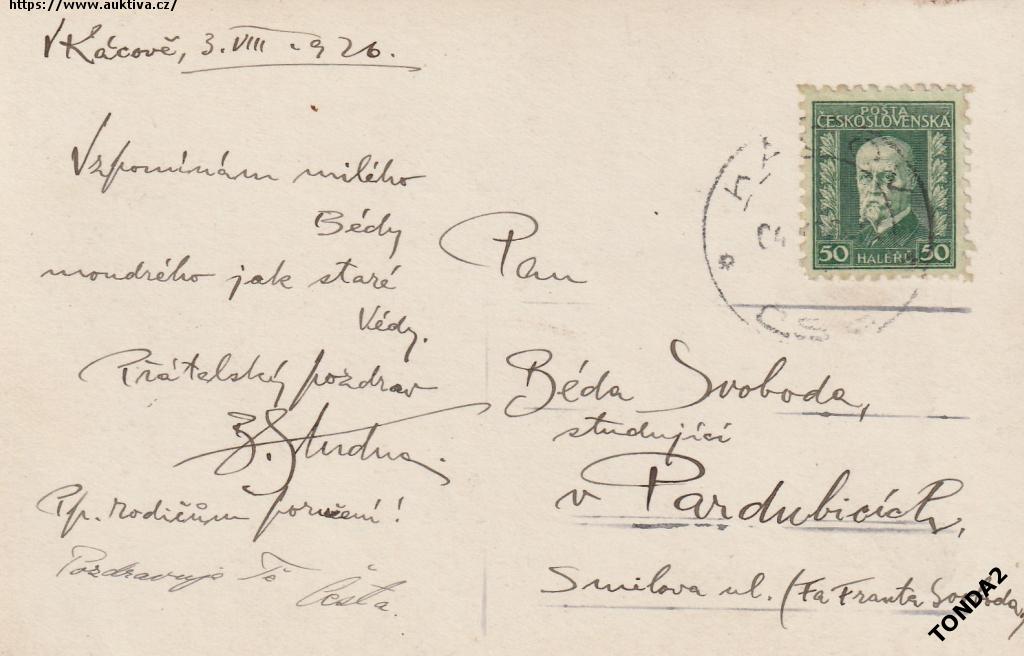 https://www.auktiva.cz/
V Kácově, 3. VIII. 926.
Vzpomínám milého
Bédy
moudrého jak staré
Védy.
Přátelský pozdrav
Pp. rodičům poručení!
Pozdravuje Tě
Pan
Béda Svoboda,
studující
v Pardubicích,
Smilova ul. (Fa Franta Svoboda)
POŠTA
ČESKOSLOVENSKÁ
50 HALÉŘŮ 50
ČS
TONDA2